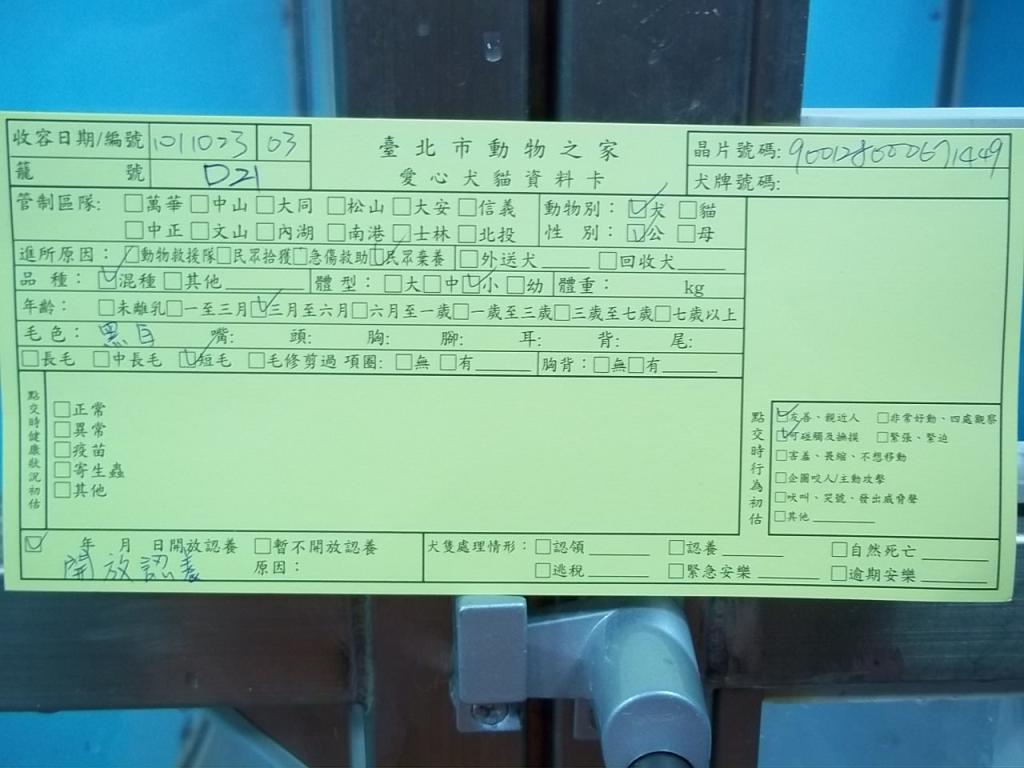 臺北市動物之家
愛心犬貓資料卡
收容日期/編號 1011023 03
籠號 D21
晶片號碼: 900128000671449
犬牌號碼:
管制區隊: □萬華 □中山 □大同 □松山 □大安 □信義
□中正 □文山 □內湖 □南港 □士林 □北投
動物別: ☑犬 □貓
性別: ☑公 □母
進所原因: □動物救援隊 □民眾拾獲 □急傷救助 ☑民眾棄養 □外送犬____ □回收犬____
品種: ☑混種 □其他________ 體型: □大 □中 ☑小 □幼 體重: kg
年齡: □未離乳 □一至三月 ☑三月至六月 □六月至一歲 □一歲至三歲 □三歲至七歲 □七歲以上
毛色: 黑白 嘴: 頭: 胸: 腳: 耳: 背: 尾:
□長毛 □中長毛 ☑短毛 □毛修剪過 項圈: □無 □有____ 胸背: □無 □有____
點交時健康狀況初估
□正常
□異常
□疫苗
□寄生蟲
□其他
點交時行為初估
☑友善、親近人 □非常好動、四處觀察
☑可碰觸及撫摸 □緊張、緊迫
□害羞、畏縮、不想移動
□企圖咬人/主動攻擊
□吠叫、哭號、發出威脅聲
□其他________
☑ 年 月 日開放認養 □暫不開放認養
開放認養 原因:
犬隻處理情形: □認領____ □認養____ □自然死亡____
□逃稅____ □緊急安樂____ □逾期安樂____